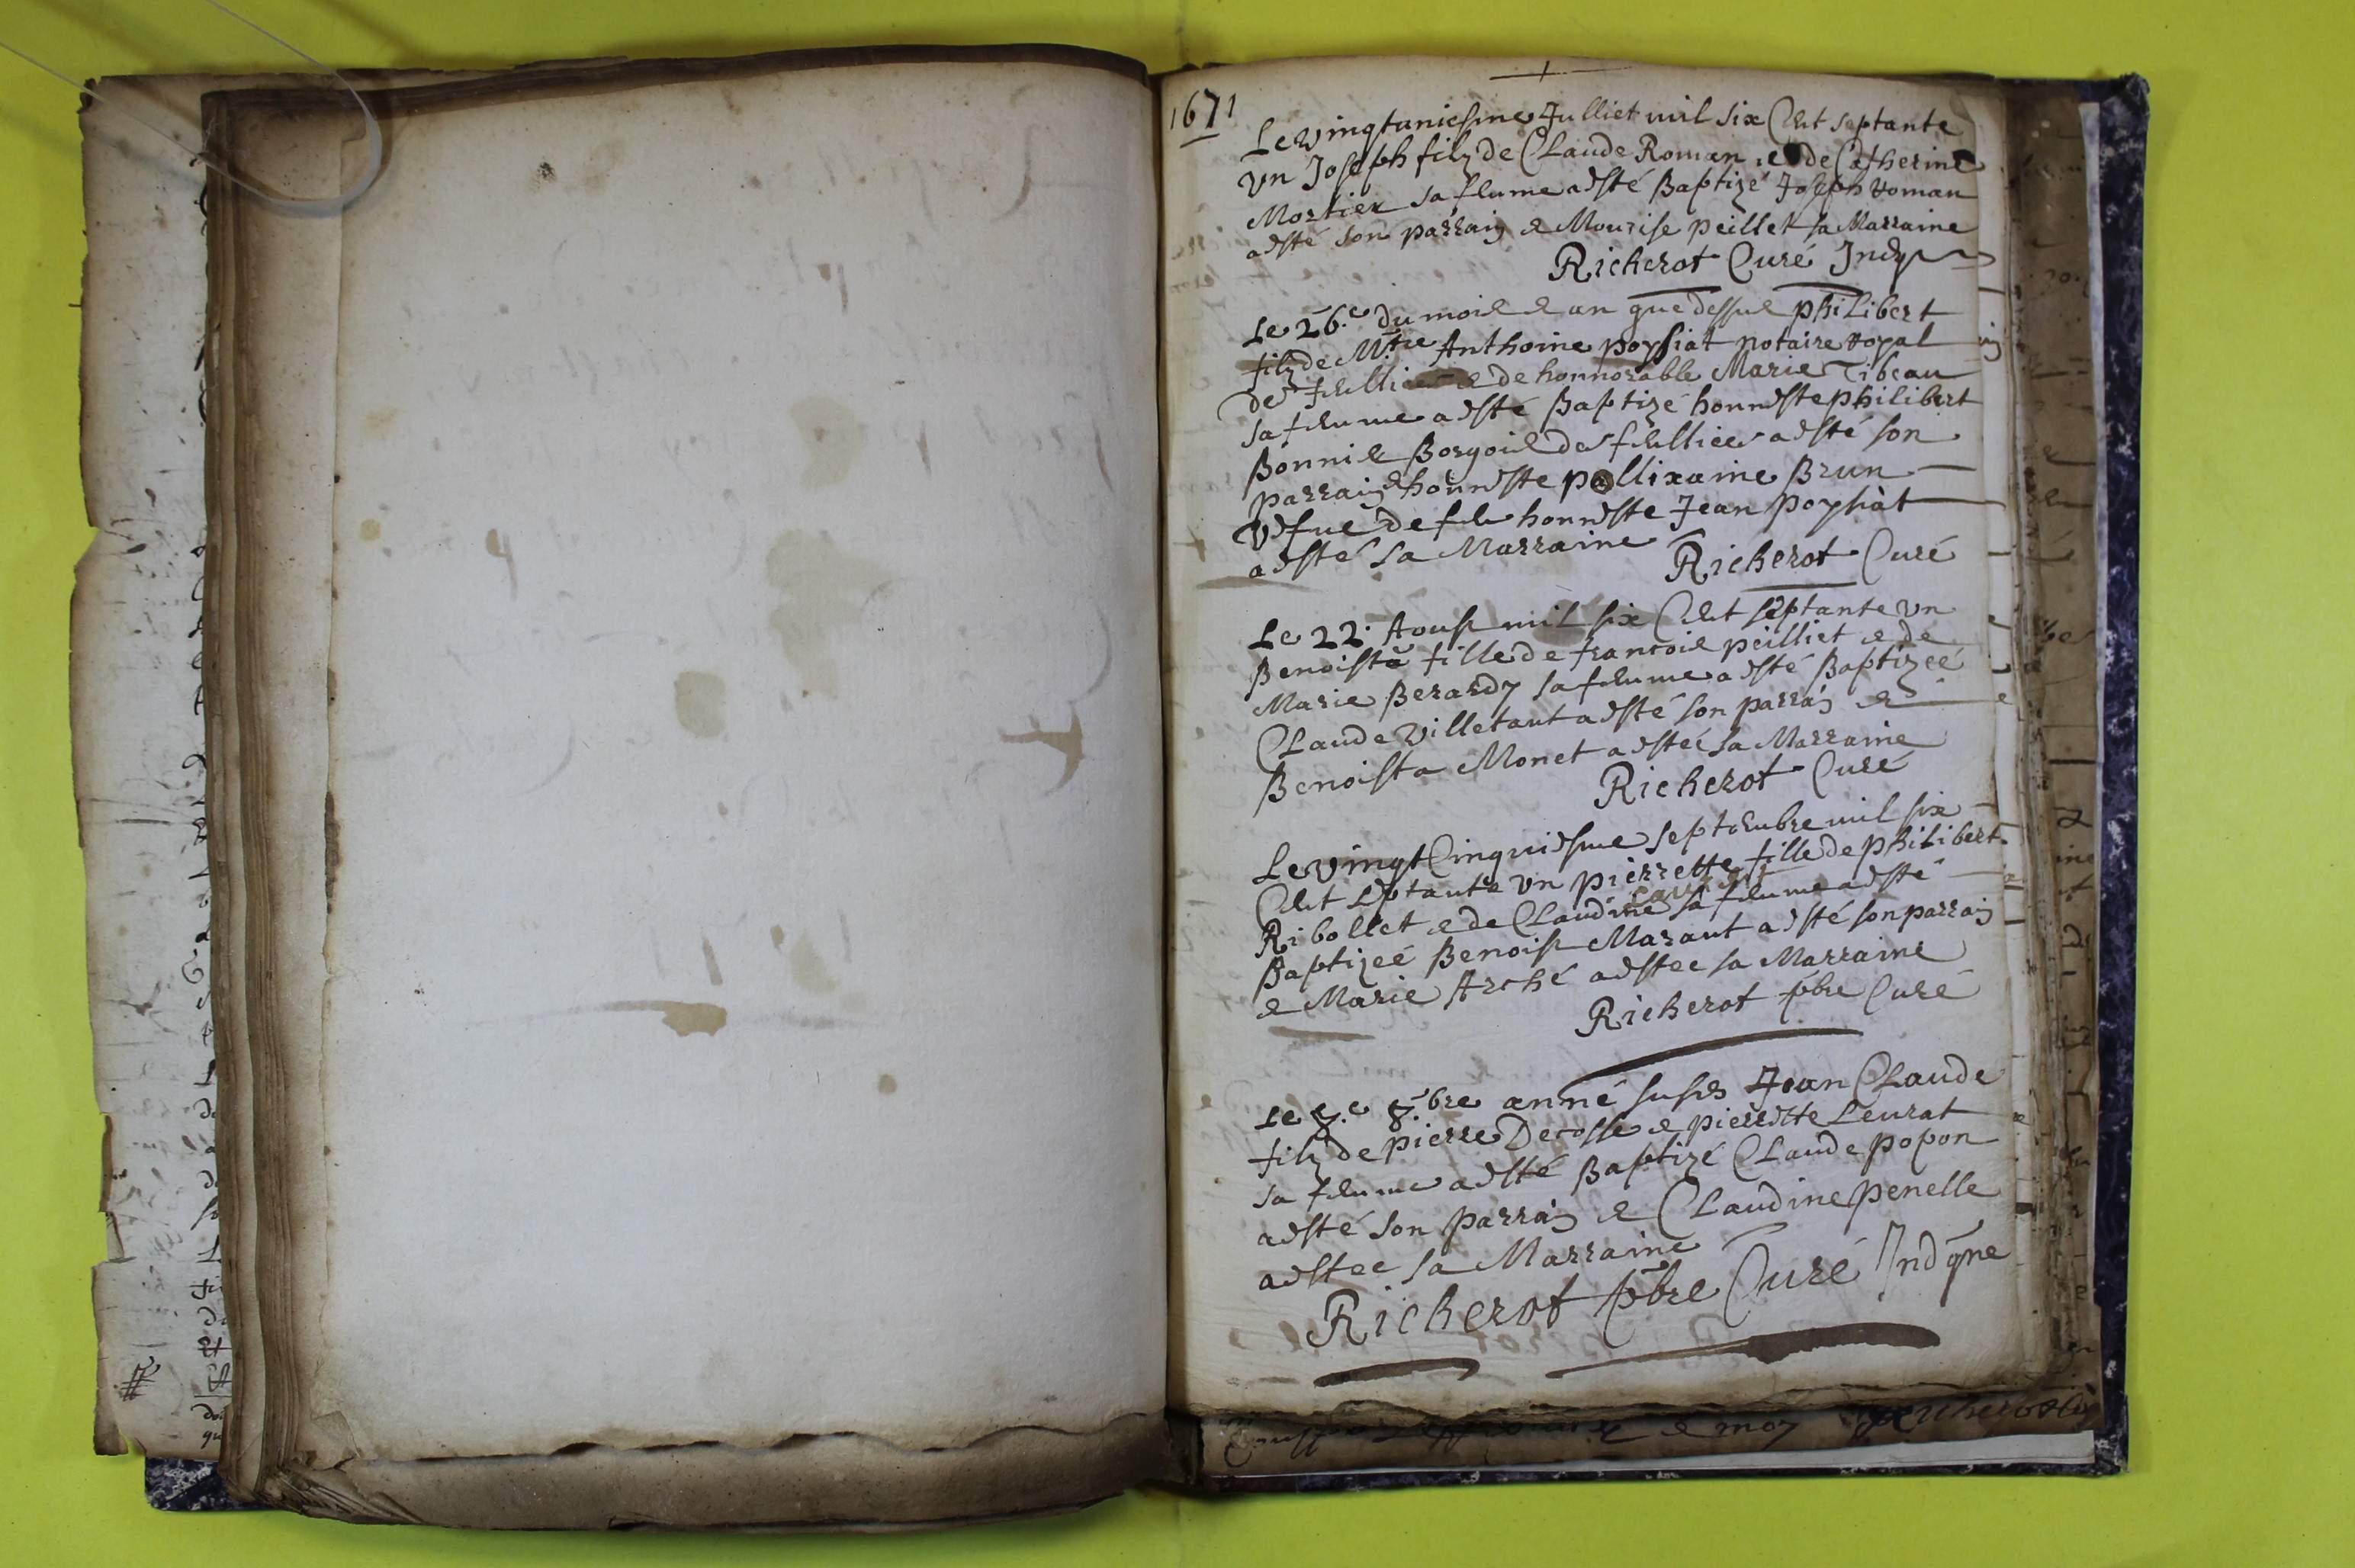 1671
Le vingtuniesme Julliet mil six Cent septante
vn Joseph filz de Claude Roman e de Catherine
Mortier sa femme a esté Baptizé Joseph Roman
a esté son parrain e Mourise peillet sa Marraine
Richerot Curé Indg
Le 26.e du mois e an que dessus philibert
filz de Mtre Anthoine poysiat notaire royal
de e de honnorable Marie Tibeau
sa femme a esté Baptizé honneste philibert
Bonni e Borgois de a esté son
parrain e honneste pollixaine Brun
vefue de feu honneste Jean poysiat
a esté sa Marraine
Richerot Curé
Le 22. Aoust mil six Cent septante vn
Benoista fille de francois peilliet e de
Marie Berardy sa femme a esté Baptizeé
Claude Villetant a esté son parrain e
Benoista Monet a esteé sa Marraine
Richerot Curé
Le vingt Cinquiesme septembre mil six
Cent septante vn pierrette fille de philibert
Ribollet e de Claudine sa femme a esté
Baptizeé Benoist Marant a esté son parrain
e Marie Arché a estee sa Marraine
Richerot pbre Curé
Le 8.bre anné susd Jean Claude
filz de pierre Decosse e pierrette Leurat
sa femme a esté Baptizé Claude popon
a esté son parrain e Claudine penelle
a estee sa Marraine
Richerot pbre Curé Indgne
e moy